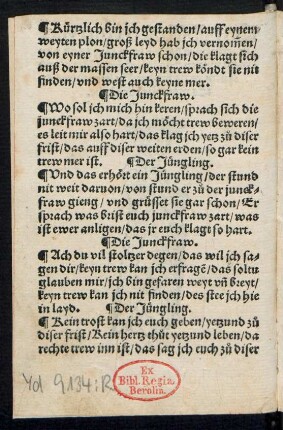 ¶ Kürtzlich bin ich gestanden/ auff eynem
weyten plon/ groß leyd hab ich vernomẽ/
von eyner Junckfraw schon/ die klagt sich
auß der massen seer/ keyn trew köndt sie nit
finden/ vnd west auch keyne mer.
¶ Die Junckfraw.
¶ Wo sol ich mich hin keren/ sprach sich die
junckfraw zart/ da ich möcht trew beweren/
es leit mir also hart/ das klag ich yetz zů diser
frist/ das auff diser weiten erden/ so gar kein
trew mer ist. ¶ Der Jüngling.
¶ Vnd das erhört ein Jüngling/ der stund
nit weit daruon/ von stund er zů der junck-
fraw gieng/ vnd grüsset sie gar schon/ Er
sprach was brist euch junckfraw zart/ was
ist ewer anligen/ das jr euch klagt so hart.
¶ Die Junckfraw.
¶ Ach du vil stoltzer degen/ das wil ich sa-
gen dir/ keyn trew kan ich erfragẽ/ das soltu
glauben mir/ ich bin gefaren weyt vñ breyt/
keyn trew kan ich nit finden/ des stee ich hie
in layd. ¶ Der Jüngling.
¶ Kein trost kan ich euch geben/ yetzund zů
diser frist/ Kein hertz thůt yetzund leben/ da
rechte trew inn ist/ das sag ich euch zů diser
Yd 9134: R
Ex
Bibl. Regia
Berolin.